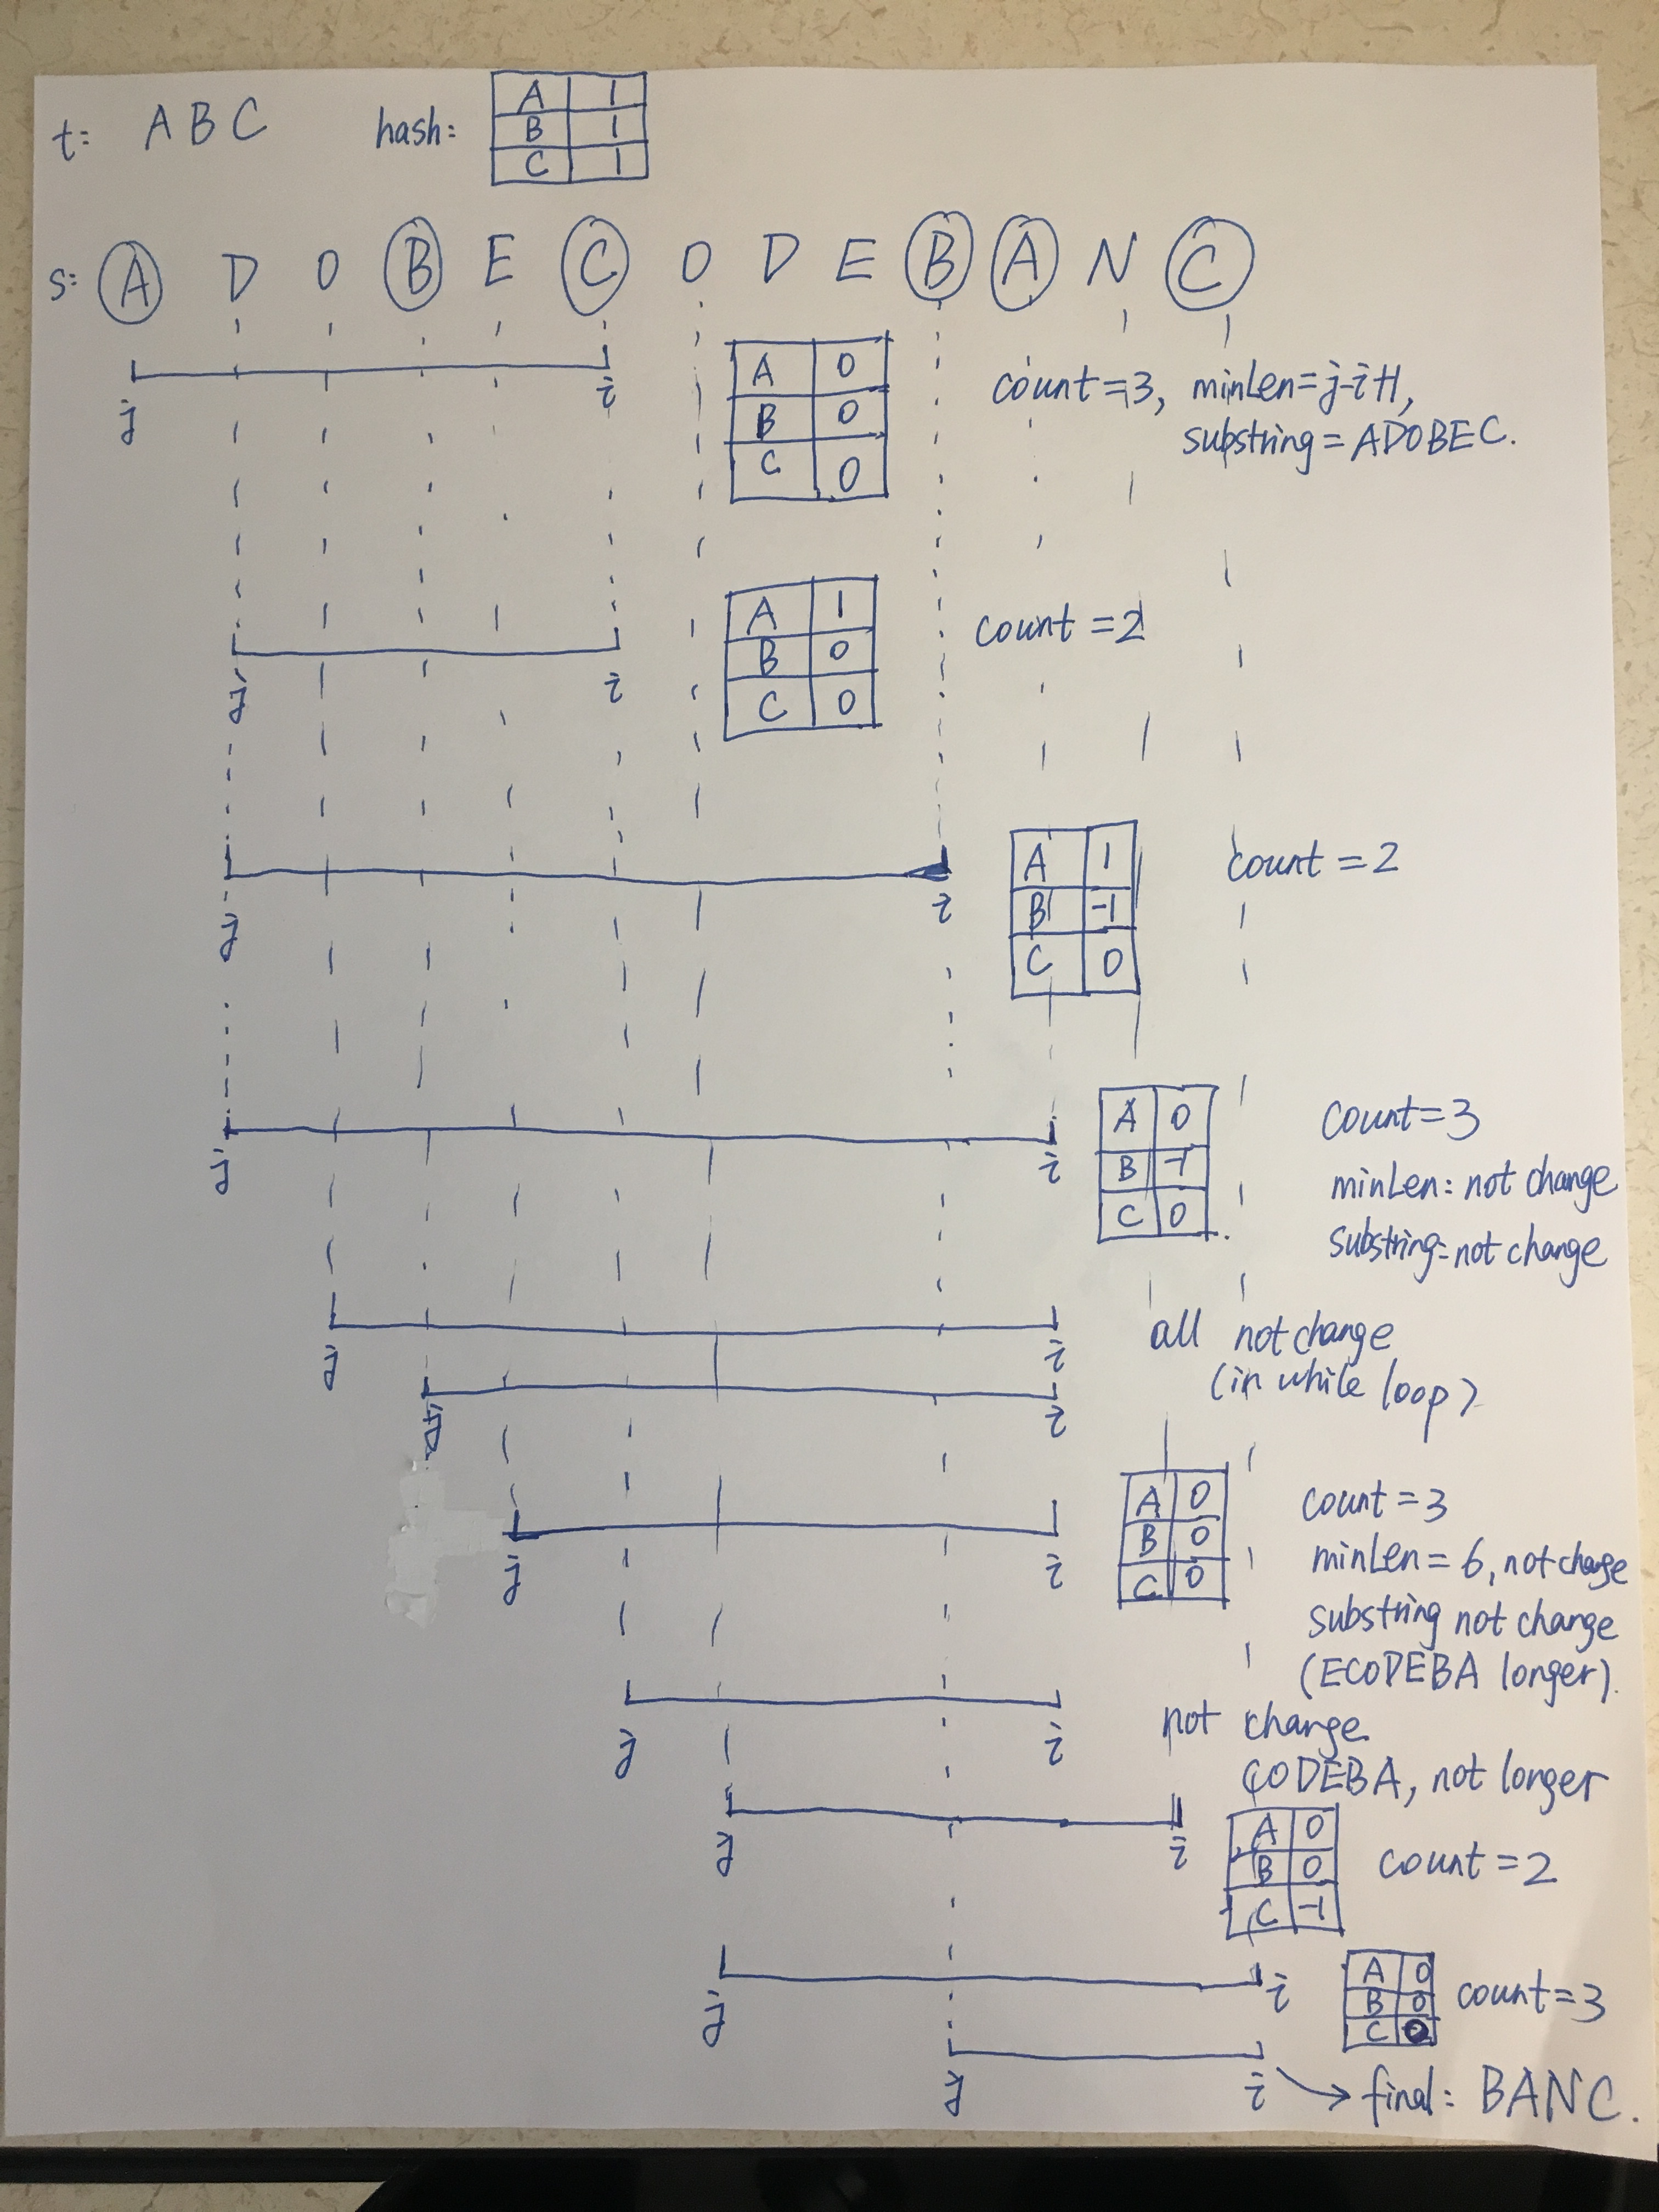 t: ABC hash: A 1
B 1
C 1
s: A D O B E C O D E B A N C
j i
A 0
B 0
C 0
count=3, minLen=j-i+1,
substring=ADOBEC.
j i
A 1
B 0
C 0
count=2
j i
A 1
B -1
C 0
count=2
j i
A 0
B -1
C 0
count=3
minLen: not change
substring: not change
j i
all not change
(in while loop)
j i
j i
A 0
B 0
C 0
count=3
minLen=6, not change
substring not change
(ECODEBA longer).
j i
not change
CODEBA, not longer
j i
A 0
B 0
C -1
count=2
j i
A 0
B 0
C 0
count=3
j i
final: BANC.